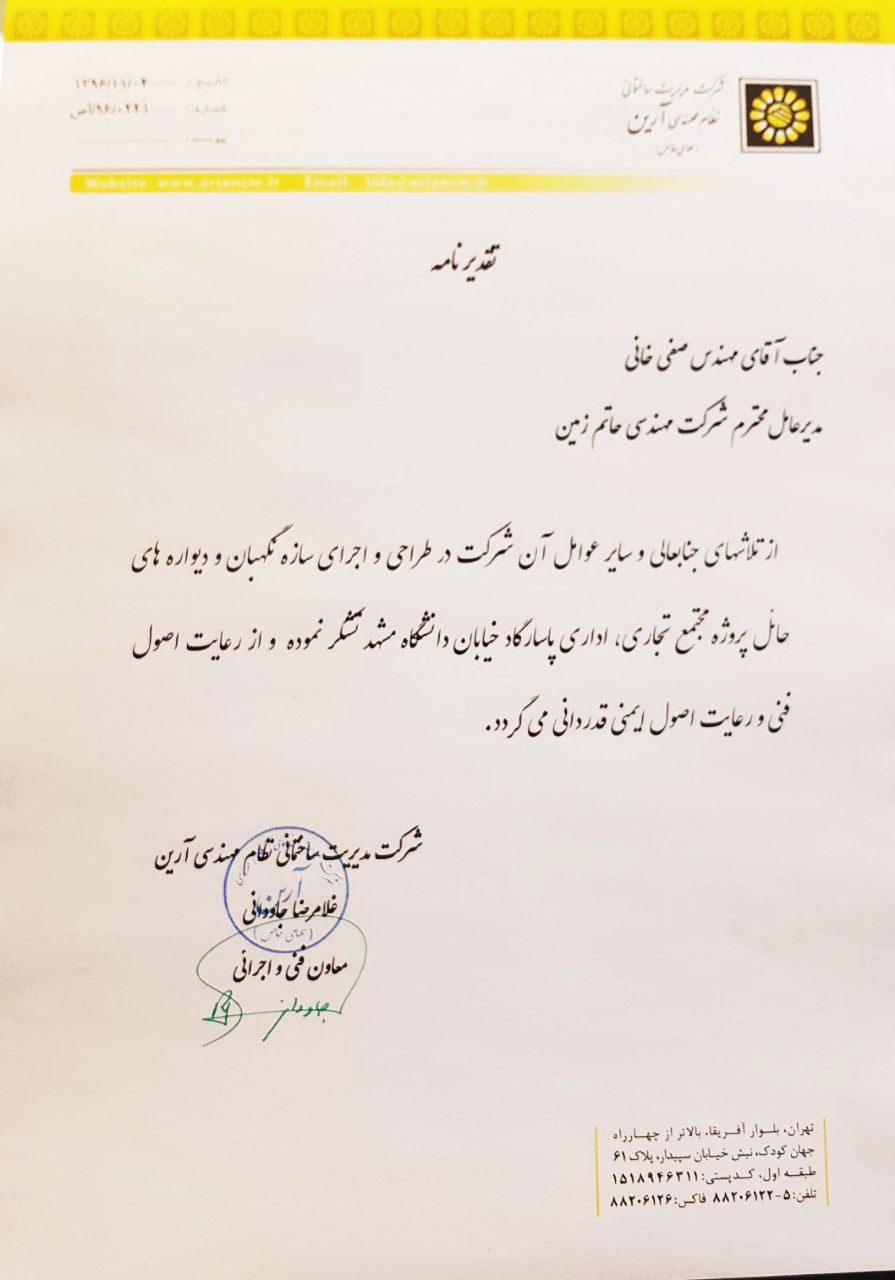 شرکت مدیریت ساختمانی
نظام مهندسی آرین
(سهامی خاص)
تاریخ: ۱۳۹۶/۱۱/۰۴
شماره: ۹۶/۰۴۴۱/اص
پیوست:
Website: www.ariancm.ir Email: info@ariancm.ir
تقدیر نامه
جناب آقای مهندس صفی خانی
مدیرعامل محترم شرکت مهندسی حاتم زمین
از تلاشهای جنابعالی و سایر عوامل آن شرکت در طراحی و اجرای سازه نگهبان و دیواره های
حائل پروژه مجتمع تجاری، اداری پاسارگاد خیابان دانشگاه مشهد تشکر نموده و از رعایت اصول
فنی و رعایت اصول ایمنی قدردانی می گردد.
شرکت مدیریت ساختمانی نظام مهندسی آرین
غلامرضا جاودانی
معاون فنی و اجرائی
آرین
(سهامی خاص)
تهران، بلوار آفریقا، بالاتر از چهارراه
جهان کودک، نبش خیابان سپیدار، پلاک ۶۱
طبقه اول، کدپستی: ۱۵۱۸۹۴۶۳۱۱
تلفن: ۵-۸۸۲۰۶۱۲۲ فاکس: ۸۸۲۰۶۱۲۶